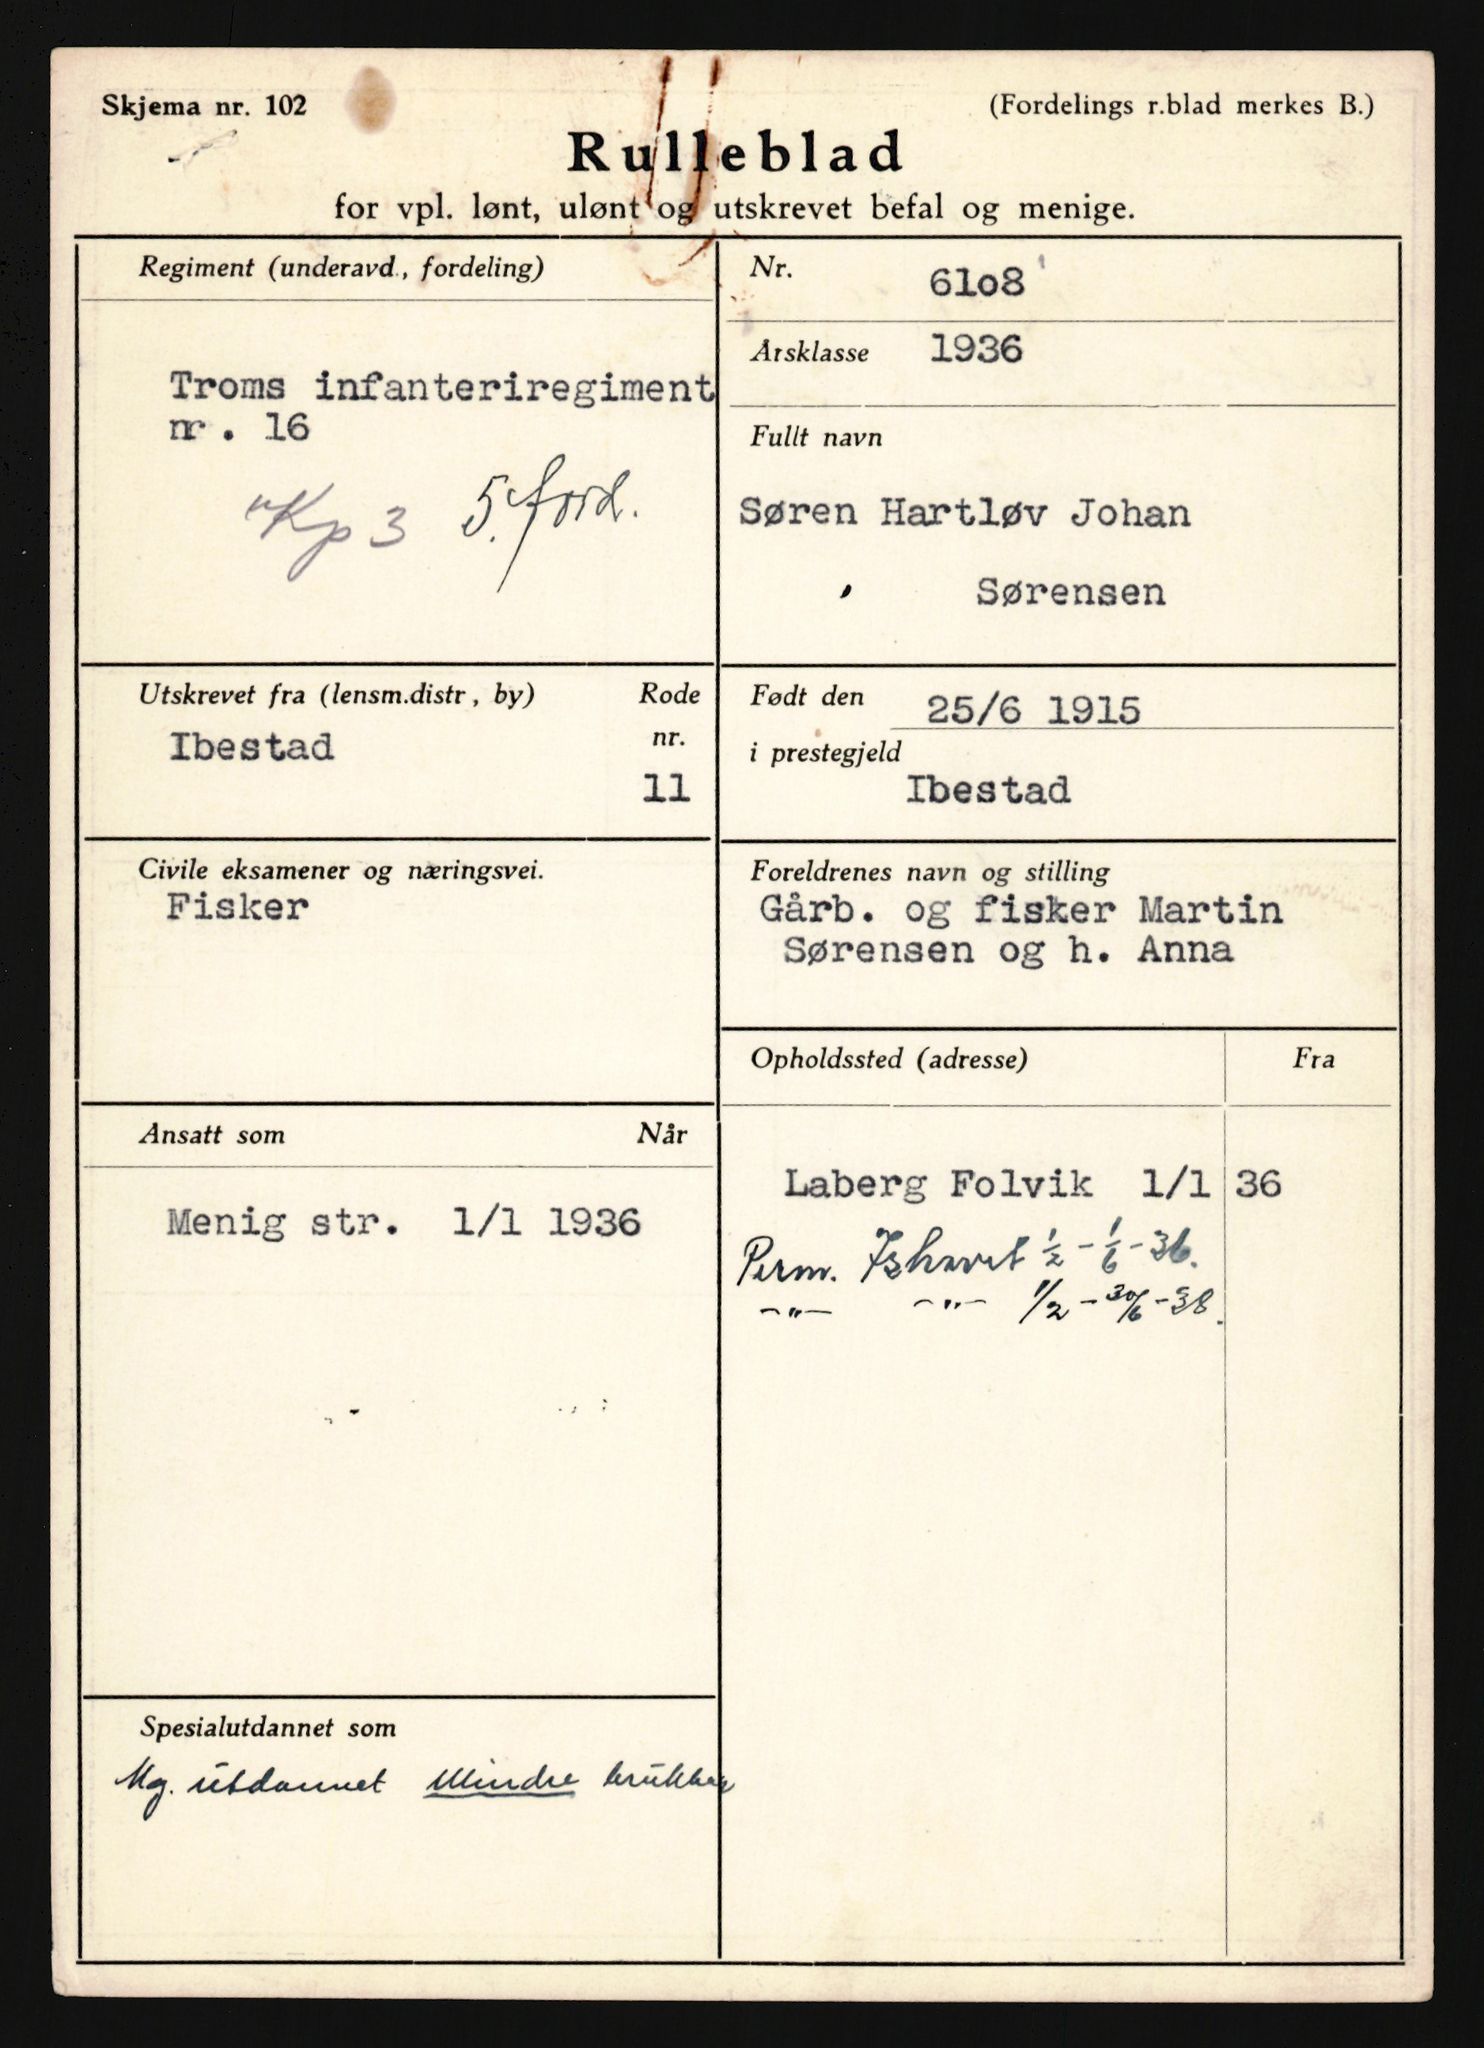 Skjema nr. 102
(Fordelings r.blad merkes B.)
Rulleblad
for vpl. lønt, ulønt og utskrevet befal og menige.
Regiment (underavd., fordeling)
Troms infanteriregiment
nr. 16
"Kp 3 5. ford.
Nr. 6108
Årsklasse 1936
Fullt navn
Søren Hartløv Johan
Sørensen
Utskrevet fra (lensm.distr, by) Rode
nr.
Ibestad
11
Født den 25/6 1915
i prestegjeld
Ibestad
Civile eksamener og næringsvei.
Fisker
Foreldrenes navn og stilling
Gårb. og fisker Martin
Sørensen og h. Anna
Ansatt som Når
Menig str. 1/1 1936
Opholdssted (adresse) Fra
Laberg Folvik 1/1 36
Perm. Ishavet 1/2 - 1/6 - 36.
-"- -"- 1/2 - 30/6 - 38.
Spesialutdannet som
Mg. utdannet Mindre brukbar